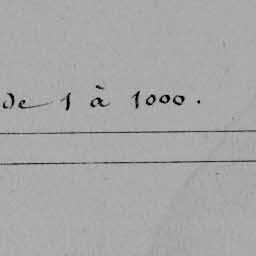 de 1 à 1000.